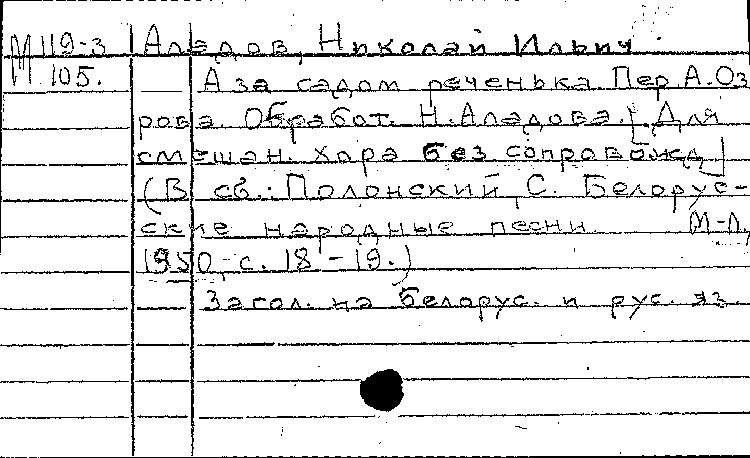 М 119-3 Аладов, Николай Ильич.
М 105. А за садом реченька. Пер. А. Оз
рова. Обработ. Н. Аладова. [Для
смешан. хора без сопровожд.]
(В сб.: Полонский, С. Белорус-
ские народные песни. М-Л,
1950, с. 18-19.)
Загол. на белорус. и рус. яз.